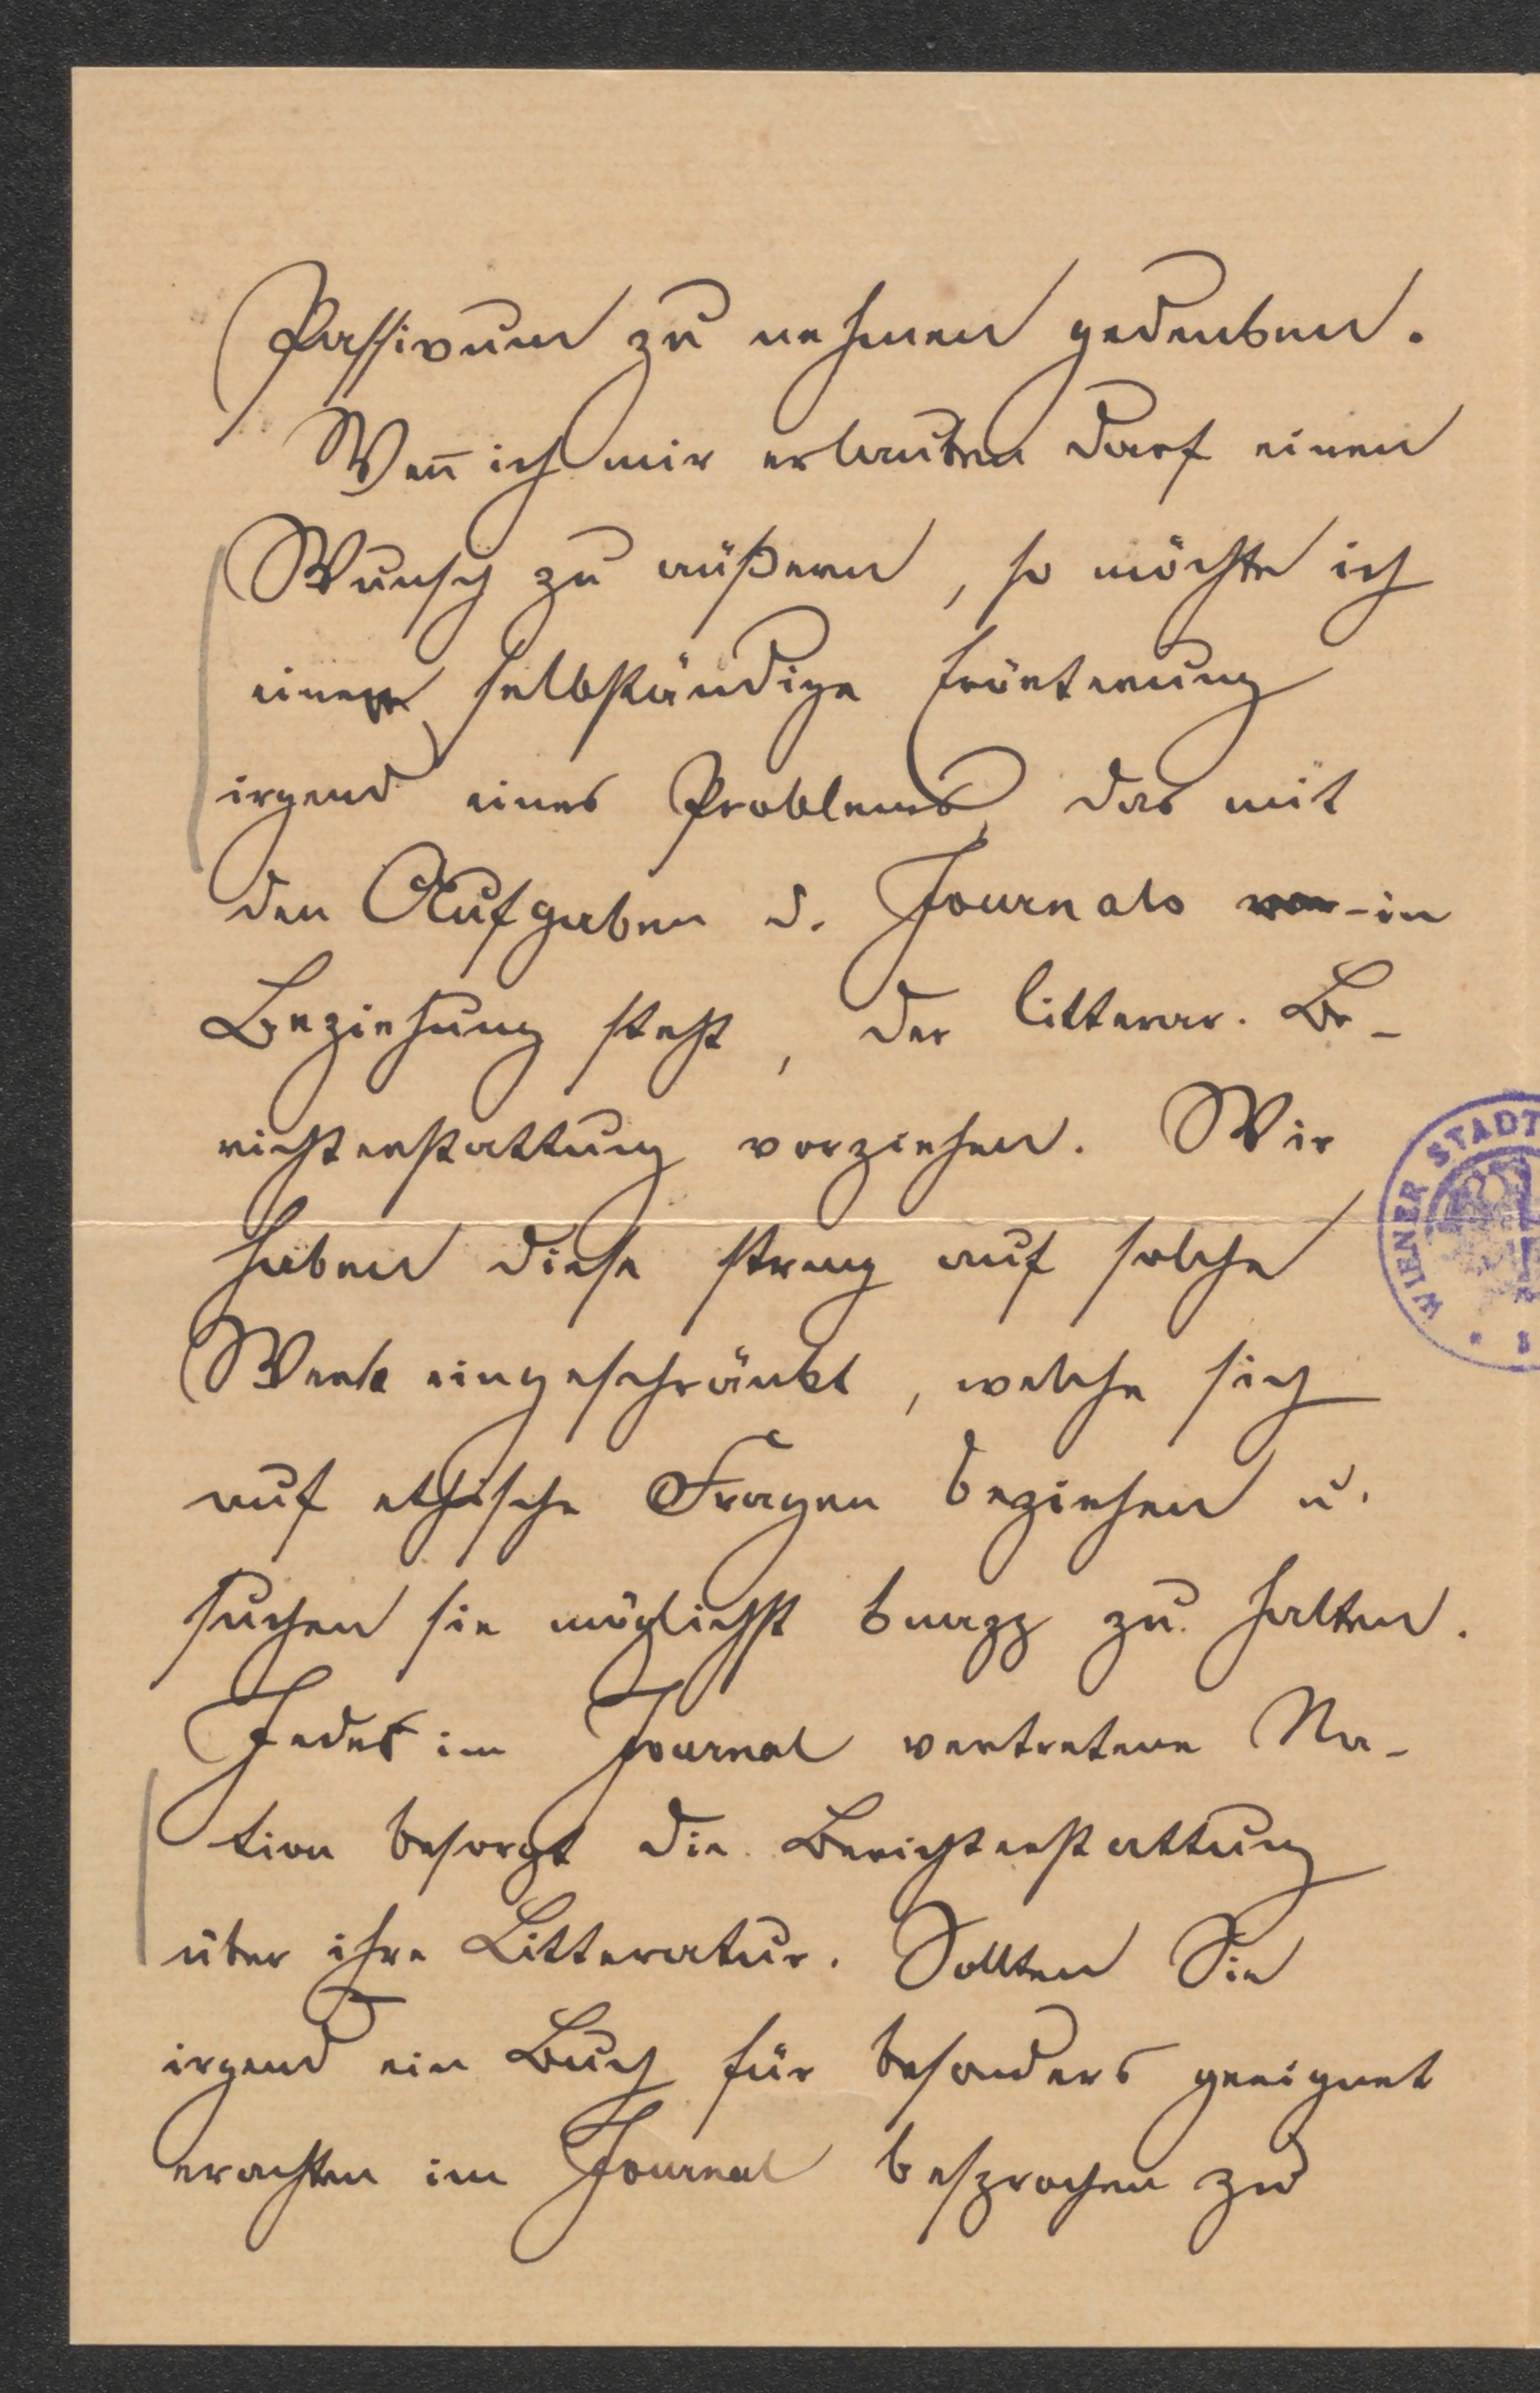 Passivum zu nehmen gedenken.
Wen̄ ich mir erlauben darf einen
Wunsch zu äußern, so möchte ich
eine selbständige Erörterung
irgend eines Problems, das mit
den Aufgaben d. Journals in
Beziehung steht, der litterar. Be-
richterstattung vorziehen. Wir
haben diese streng auf solche
Werke eingeschränkt, welche sich
auf ethische Fragen beziehen u.
suchen sie möglichst knapp zu halten.
Jede im Journal vertretene Na-
tion besorgt die Berichterstattung
über ihre Litteratur. Sollten Sie
irgend ein Buch für besonders geeignet
erachten im Journal besprochen zu
WIENER STADT